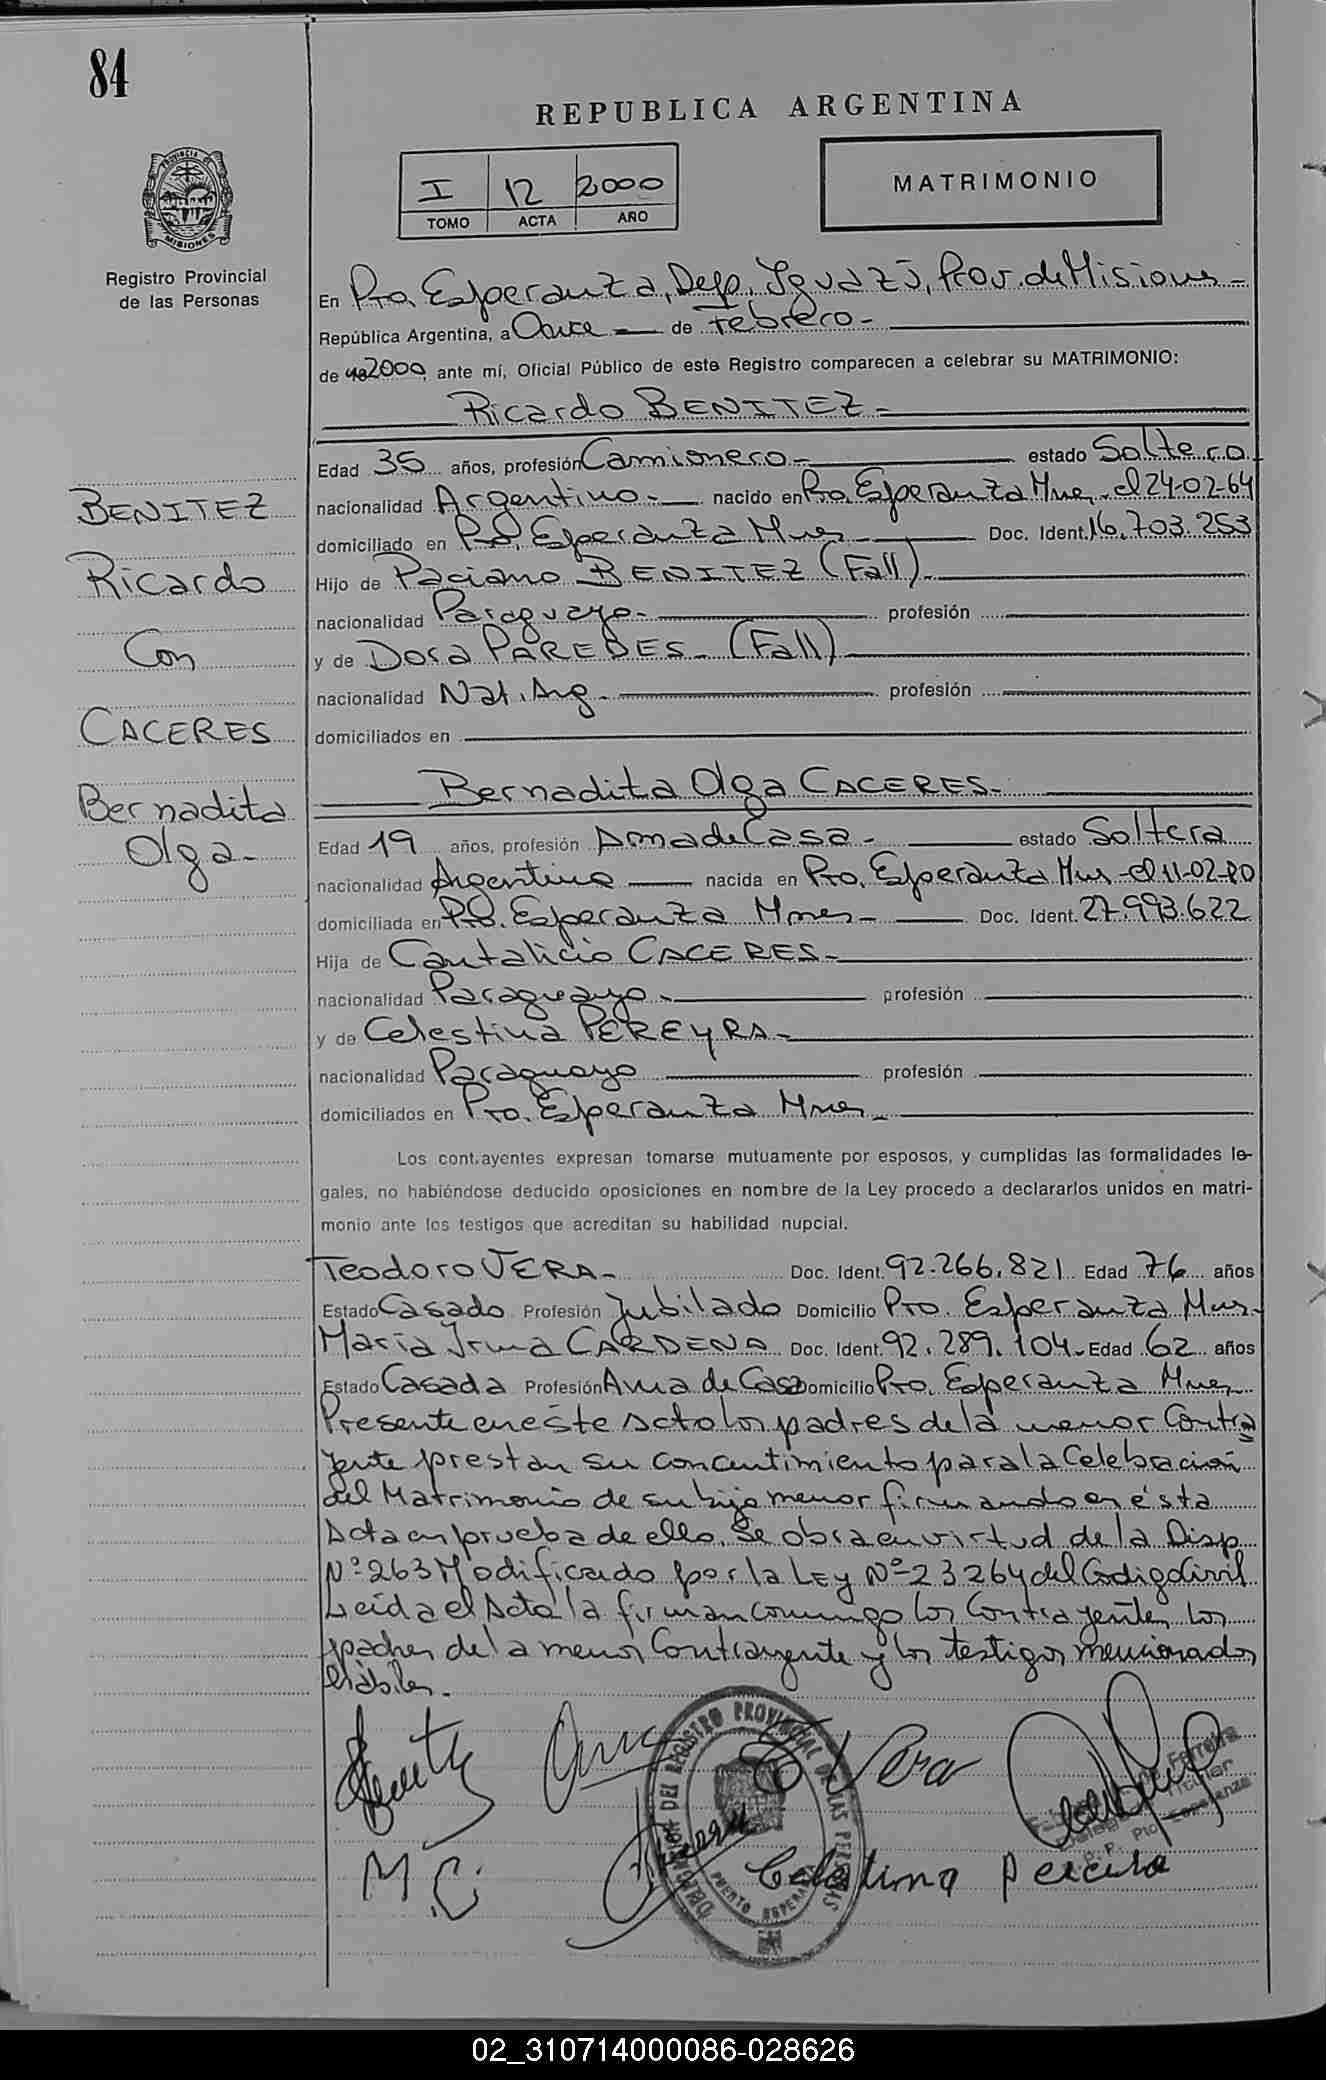 84
REPUBLICA ARGENTINA
I 12 2000
TOMO ACTA AÑO
MATRIMONIO
PROVINCIA DE
MISIONES
Registro Provincial
de las Personas
En Pto. Esperanza, Dep. Iguazú, Prov. de Misiones -
República Argentina, a Once - de Febrero -
de 2000, ante mí, Oficial Público de este Registro comparecen a celebrar su MATRIMONIO:
Ricardo BENITEZ -
Edad 35 años, profesión Camionero - estado Soltero
nacionalidad Argentino - nacido en Pto. Esperanza Mnes, el 24-02-64
domiciliado en Pto. Esperanza Mnes - Doc. Ident. 16.703.253
Hijo de Paciano BENITEZ (Fall) -
nacionalidad Paraguayo - profesión
y de Dora PAREDES - (Fall)
nacionalidad Nat. Arg - profesión
domiciliados en
BENITEZ
Ricardo
Con
CACERES
Bernadita
Olga -
Bernadita Olga CACERES -
Edad 19 años, profesión Ama de Casa - estado Soltera
nacionalidad Argentina - nacida en Pto. Esperanza Mnes - el 11-02-80
domiciliada en Pto. Esperanza Mnes - Doc. Ident. 27.993.622
Hija de Cantalicio CACERES -
nacionalidad Paraguayo - profesión
y de Celestina PEREYRA -
nacionalidad Paraguayo profesión
domiciliados en Pto. Esperanza Mnes -
Los contrayentes expresan tomarse mutuamente por esposos, y cumplidas las formalidades le-
gales, no habiéndose deducido oposiciones en nombre de la Ley procedo a declararlos unidos en matri-
monio ante los testigos que acreditan su habilidad nupcial.
Teodoro VERA - Doc. Ident. 92.266.821 Edad 76 años
Estado Casado Profesión Jubilado Domicilio Pto. Esperanza Mnes -
Maria Irma CARDENA Doc. Ident. 92.289.104 - Edad 62 años
Estado Casada Profesión Ama de Casa Domicilio Pto. Esperanza Mnes
Presente en éste acto los padres de la menor Contra
yente prestan su concentimiento para la Celebración
del Matrimonio de su hija menor firmando en ésta
Acta en prueba de ello. Se obra en virtud de la Disp.
Nº 263 Modificado por la LEY Nº 23264 del Codigo Civil
Leida el Acta la firman conmigo los Contrayentes, los
padres de la menor Contrayente y los testigos mencionados
hábiles -
T Vera
M. C.
Celestina Pereira
DELEGACION DEL REGISTRO PROVINCIAL DE LAS PERSONAS
PUERTO ESPERANZA
Ferreira
Titular
Pto. Esperanza
02_310714000086-028626